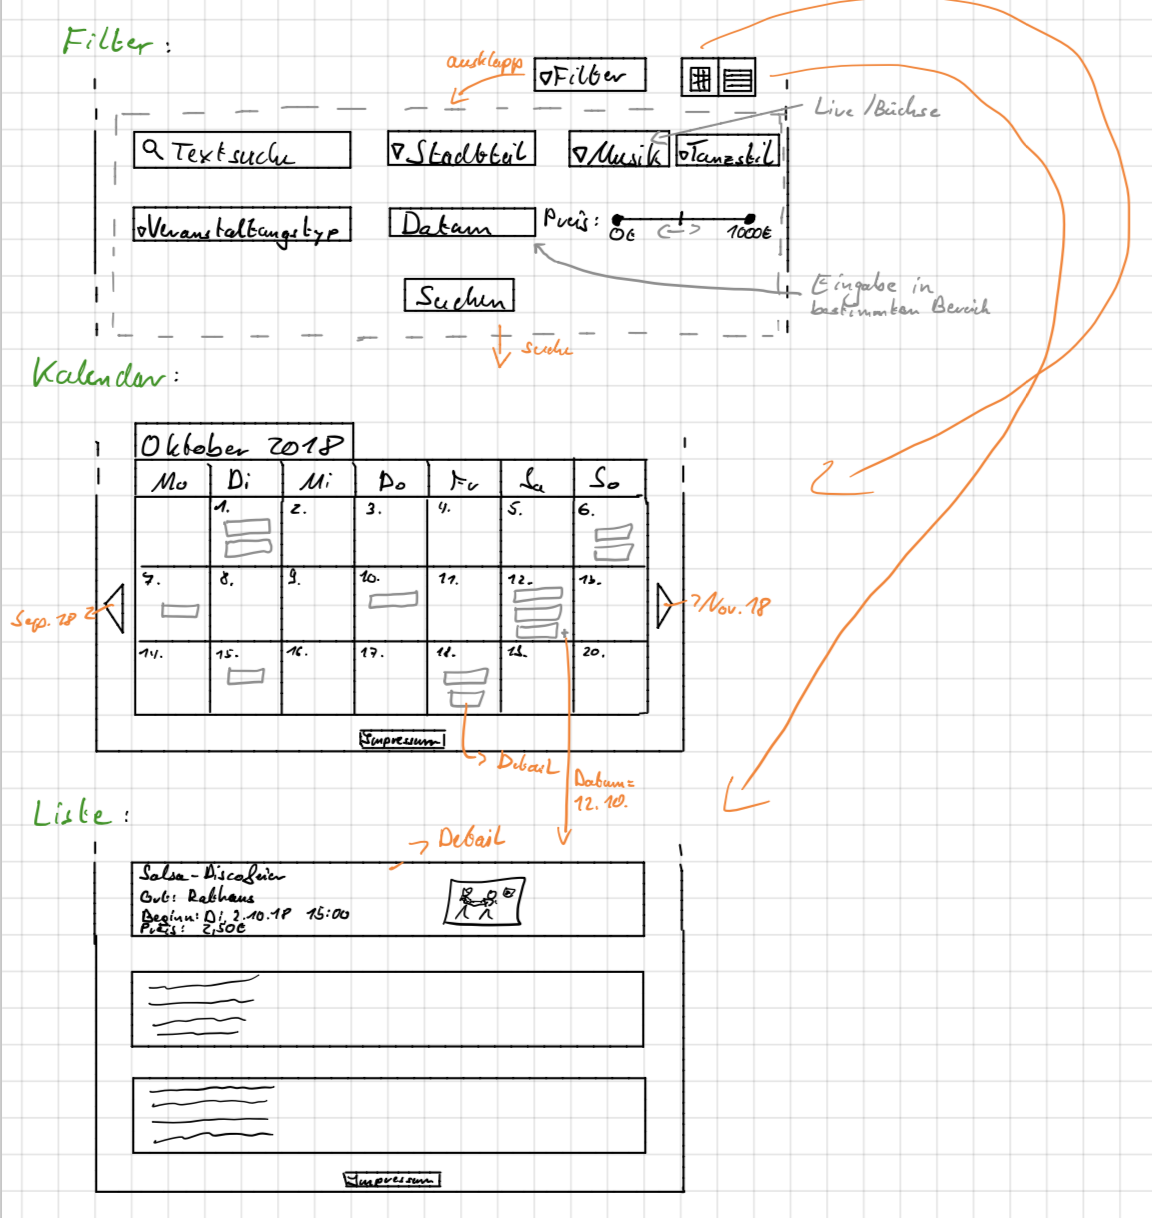 Filter :
ausklapp
▽Filter
Live / Büchse
Textsuche
▽Stadtteil
▽Musik
▽Tanzstil
▽Veranstaltungstyp
Datum
Preis:
0€
<-->
1000€
Suchen
Eingabe in
bestimmten Bereich
suche
Kalender :
Oktober 2018
Mo Di Mi Do Fr Sa So
1. 2. 3. 4. 5. 6.
7. 8. 9. 10. 11. 12. 13.
+
Sep. 18
Nov. 18
14. 15. 16. 17. 18. 19. 20.
Impressum
Detail
Datum=
12.10.
Liste :
Detail
Salsa-Discofeier
Ort: Rathaus
Beginn: Di, 2.10.18 15:00
Preis: 2,50€
Impressum